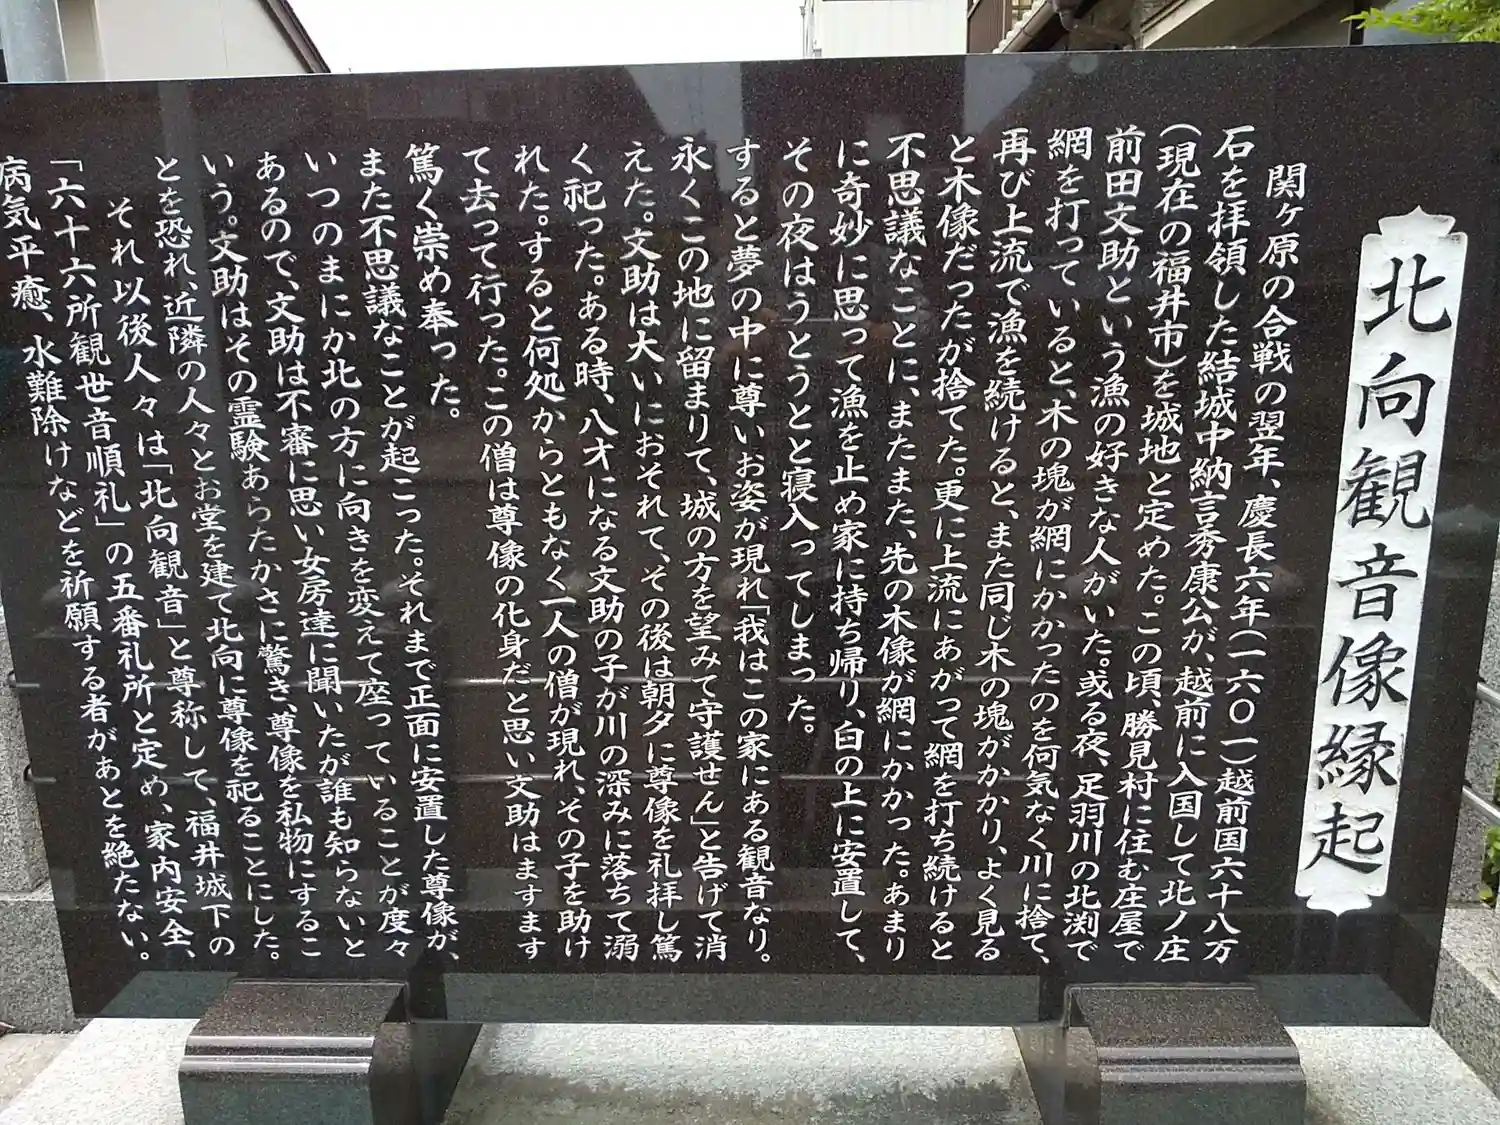 北向観音像縁起
関ヶ原の合戦の翌年、慶長六年(一六〇一)越前国六十八万
石を拝領した結城中納言秀康公が、越前に入国して北ノ庄
(現在の福井市)を城地と定めた。この頃、勝見村に住む庄屋で
前田文助という漁の好きな人がいた。或る夜、足羽川の北渕で
網を打っていると、木の塊が網にかかったのを何気なく川に捨て、
再び上流で漁を続けると、また同じ木の塊がかかり、よく見る
と木像だったが捨てた。更に上流にあがって網を打ち続けると
不思議なことに、またまた、先の木像が網にかかった。あまり
に奇妙に思って漁を止め家に持ち帰り、臼の上に安置して、
その夜はうとうとと寝入ってしまった。
すると夢の中に尊いお姿が現れ「我はこの家にある観音なり。
永くこの地に留まりて、城の方を望みて守護せん」と告げて消
えた。文助は大いにおそれて、その後は朝夕に尊像を礼拝し篤
く祀った。ある時、八才になる文助の子が川の深みに落ちて溺
れた。すると何処からともなく一人の僧が現れ、その子を助け
て去って行った。この僧は尊像の化身だと思い文助はますます
篤く崇め奉った。
また不思議なことが起こった。それまで正面に安置した尊像が、
いつのまにか北の方に向きを変えて座っていることが度々
あるので、文助は不審に思い女房達に聞いたが誰も知らないと
いう。文助はその霊験あらたかさに驚き、尊像を私物にするこ
とを恐れ、近隣の人々とお堂を建て北向に尊像を祀ることにした。
それ以後人々は「北向観音」と尊称して、福井城下の
「六十六所観世音順礼」の五番礼所と定め、家内安全、
病気平癒、水難除けなどを祈願する者があとを絶たない。